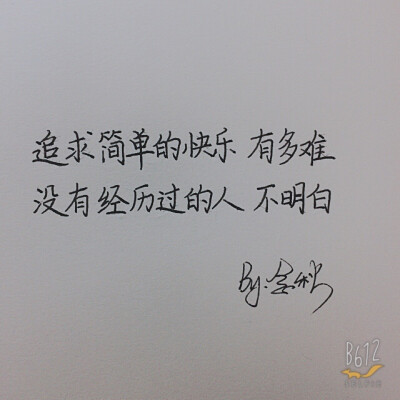 追求简单的快乐 有多难
没有经历过的人 不明白
By:
B612